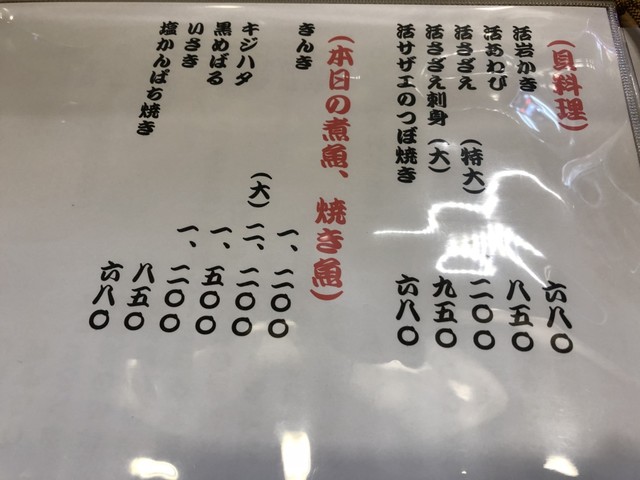 (貝料理)
活岩かき 六八〇
活あわび 八五〇
活さざえ (特大) 二〇〇
活さざえ刺身 (大) 九五〇
活サザエのつぼ焼き 六八〇
(本日の煮魚、焼き魚)
きんき 一、二〇〇
(大) 二、二〇〇
キジハタ 一、五〇〇
黒めばる 一、二〇〇
いさき 八五〇
塩かんぱち焼き 六八〇